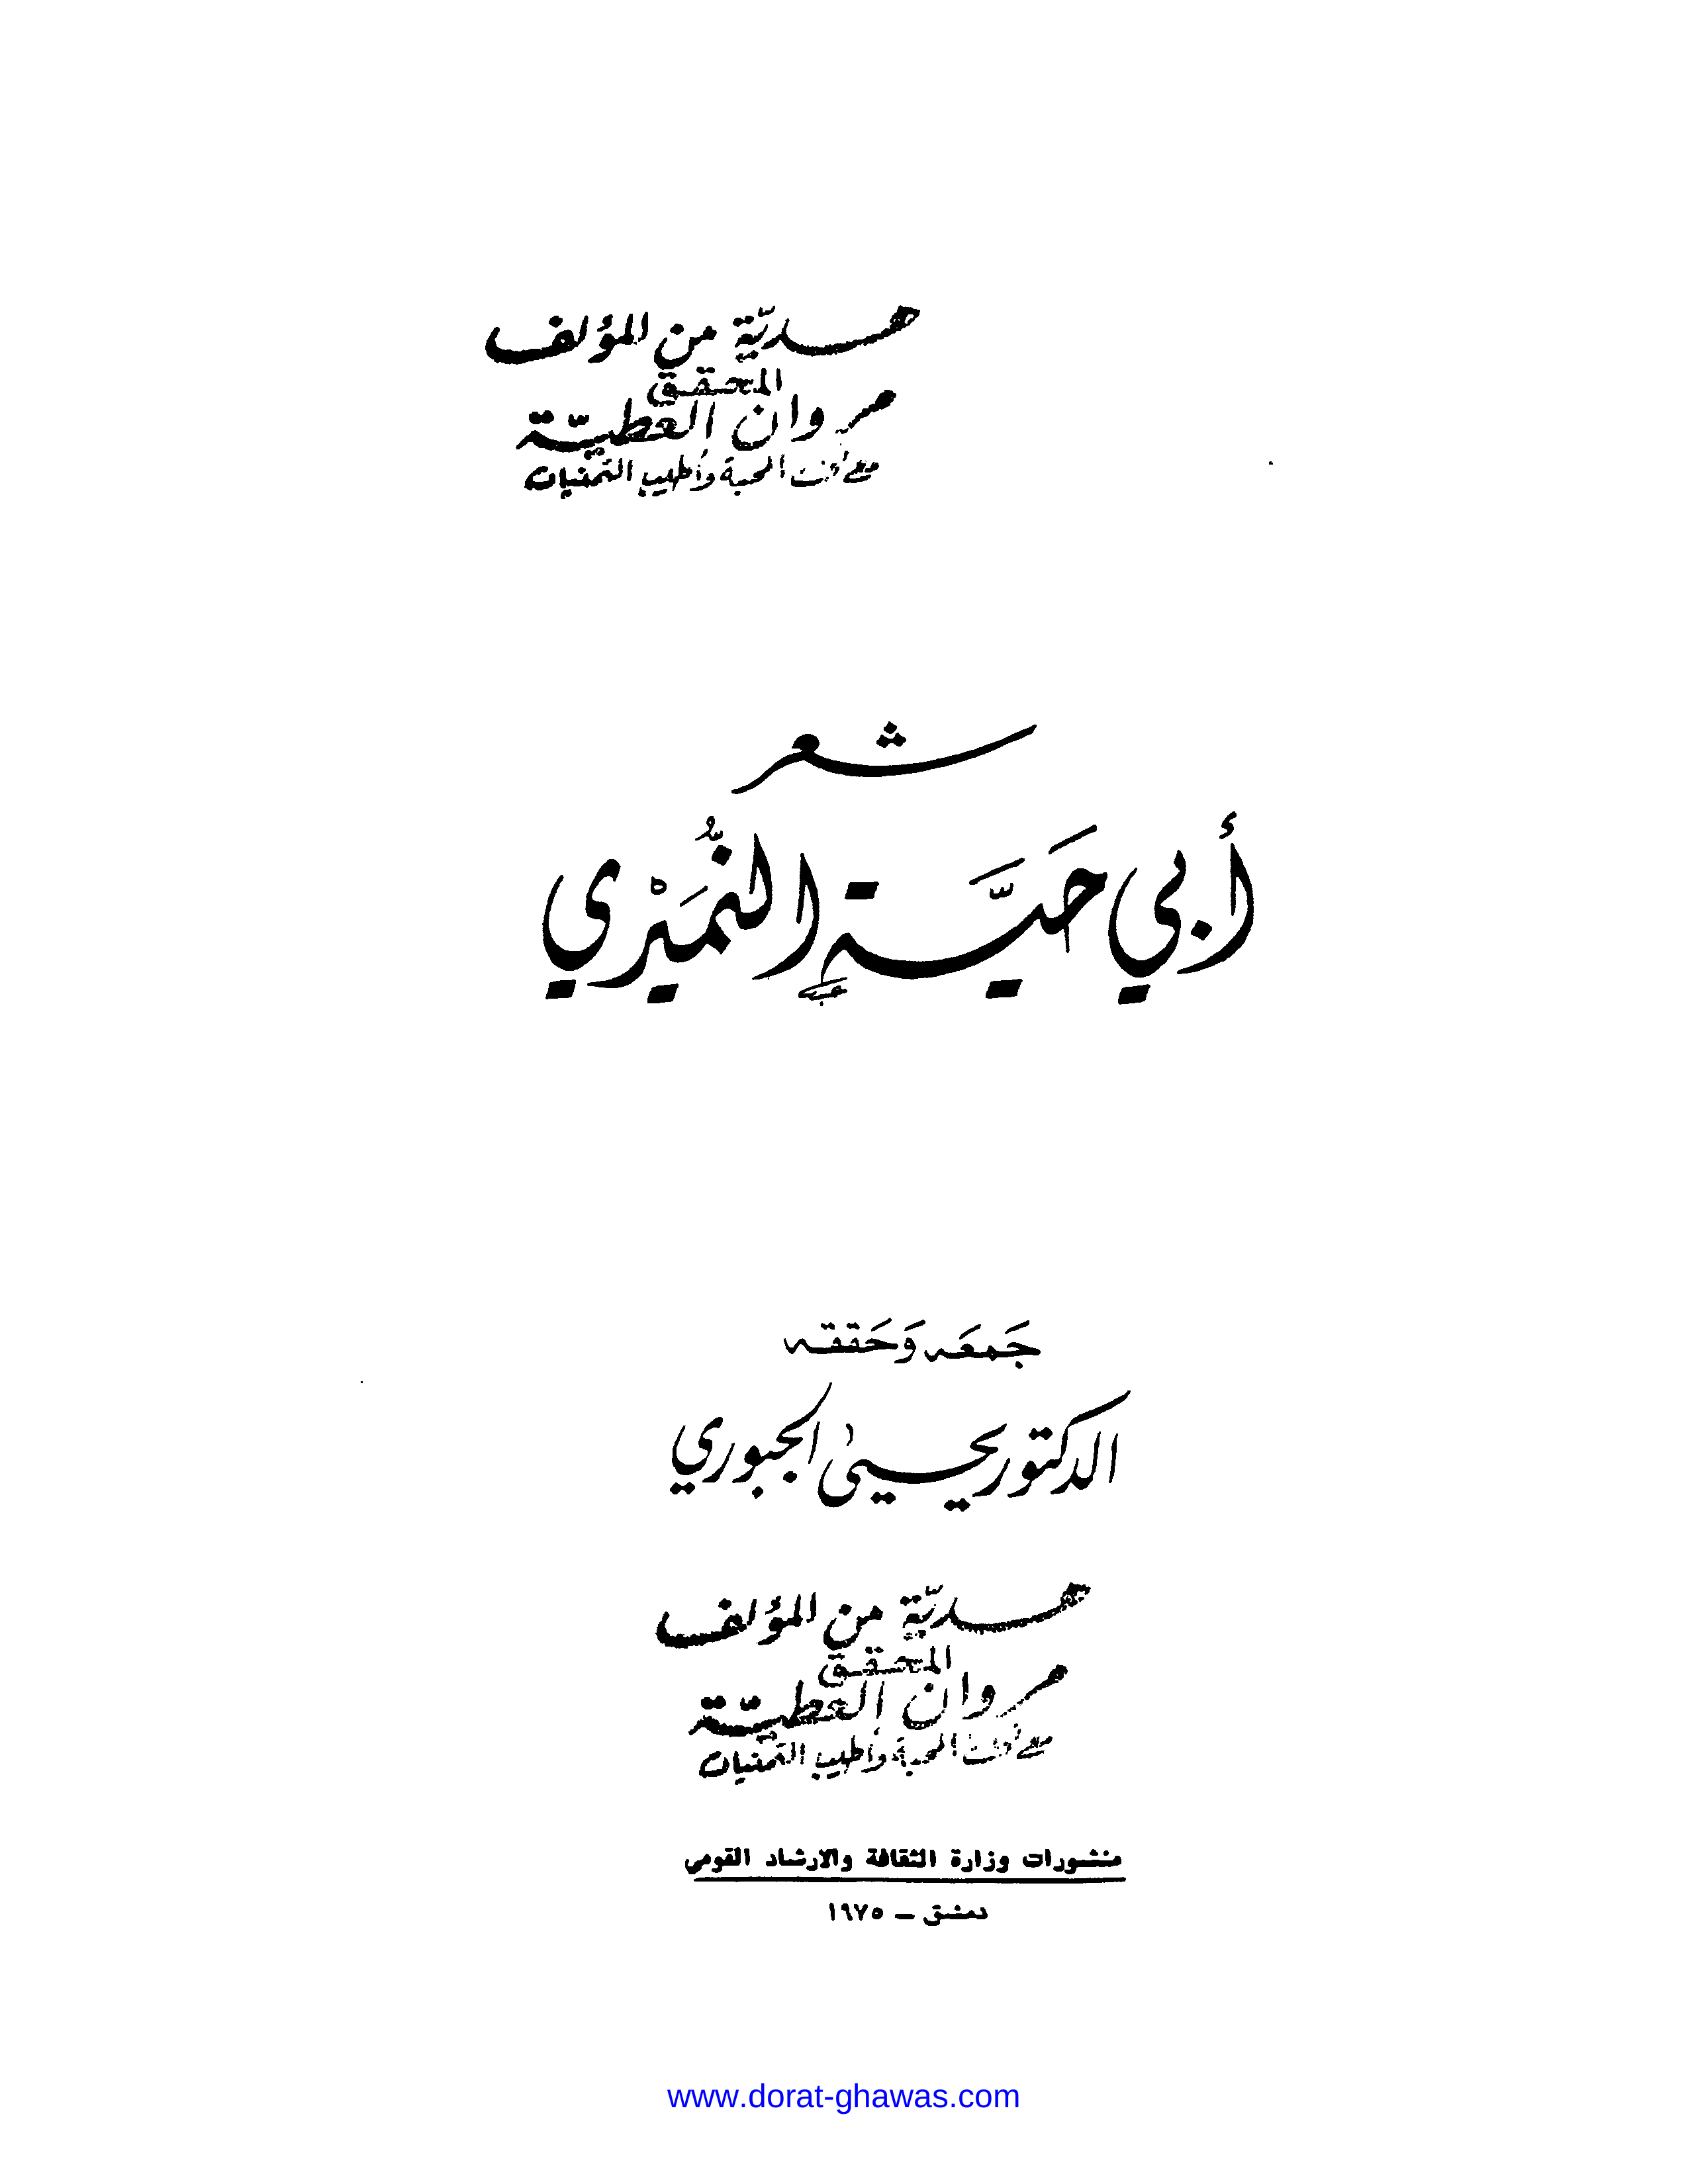 هديّة من المؤلف
المحقق
مروان العطيّة
مع المحبة وأطيب التمنيات
شعر
أبي حَيَّة النُّمَيْري
جَمعَه وَحَققه
الدكتور يحيىٰ الجبوري
هديّة من المؤلف
المحقق
مروان العطيّة
مع المحبة وأطيب التمنيات
منشورات وزارة الثقافة والارشاد القومي
دمشق – ١٩٧٥
www.dorat-ghawas.com